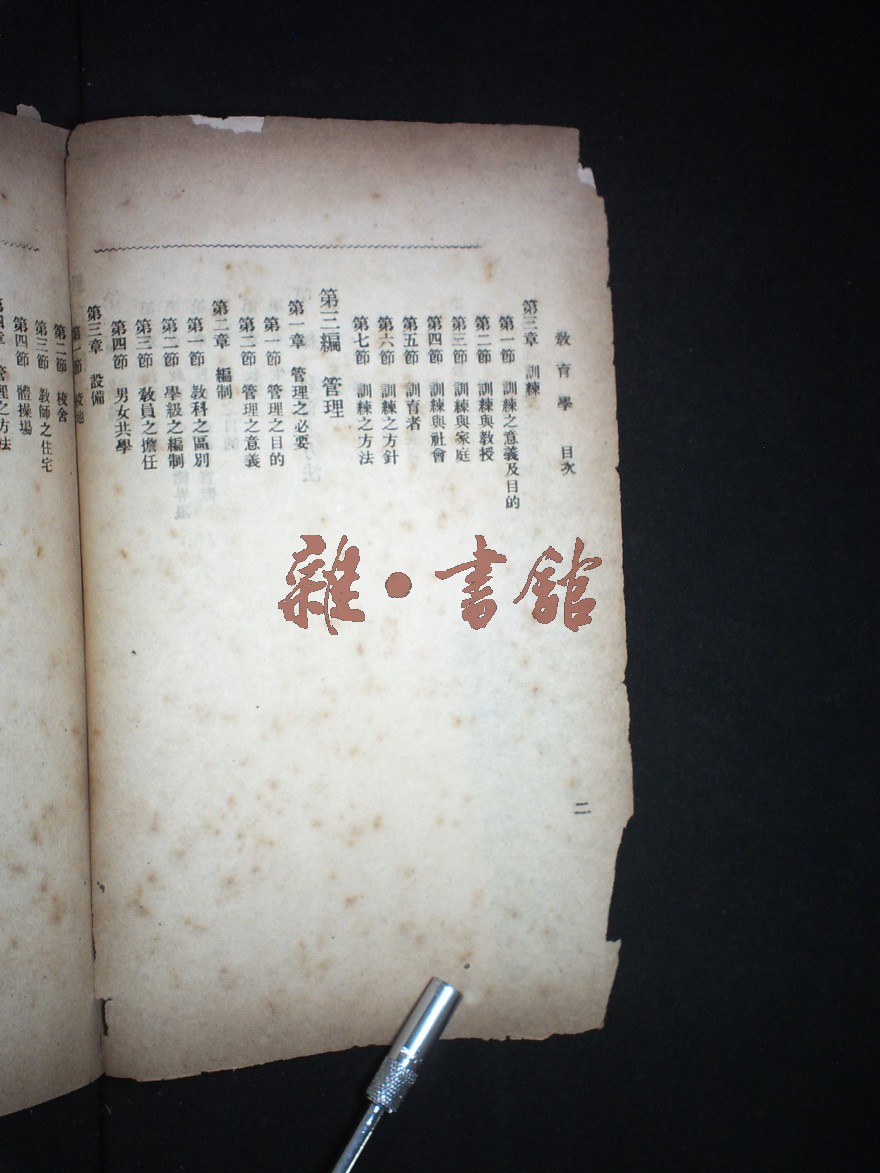 教育學 目次
二
第三章 訓練
第一節 訓練之意義及目的
第二節 訓練與教授
第三節 訓練與家庭
第四節 訓練與社會
第五節 訓育者
第六節 訓練之方針
第七節 訓練之方法
第三編 管理
第一章 管理之必要
第一節 管理之目的
第二節 管理之意義
第二章 編制
第一節 教科之區別
第二節 學級之編制
第三節 教員之擔任
第四節 男女共學
第三章 設備
第一節 校地
第二節 校舍
第三節 教師之住宅
第四節 體操場
第四章 管理之方法
雜·書館